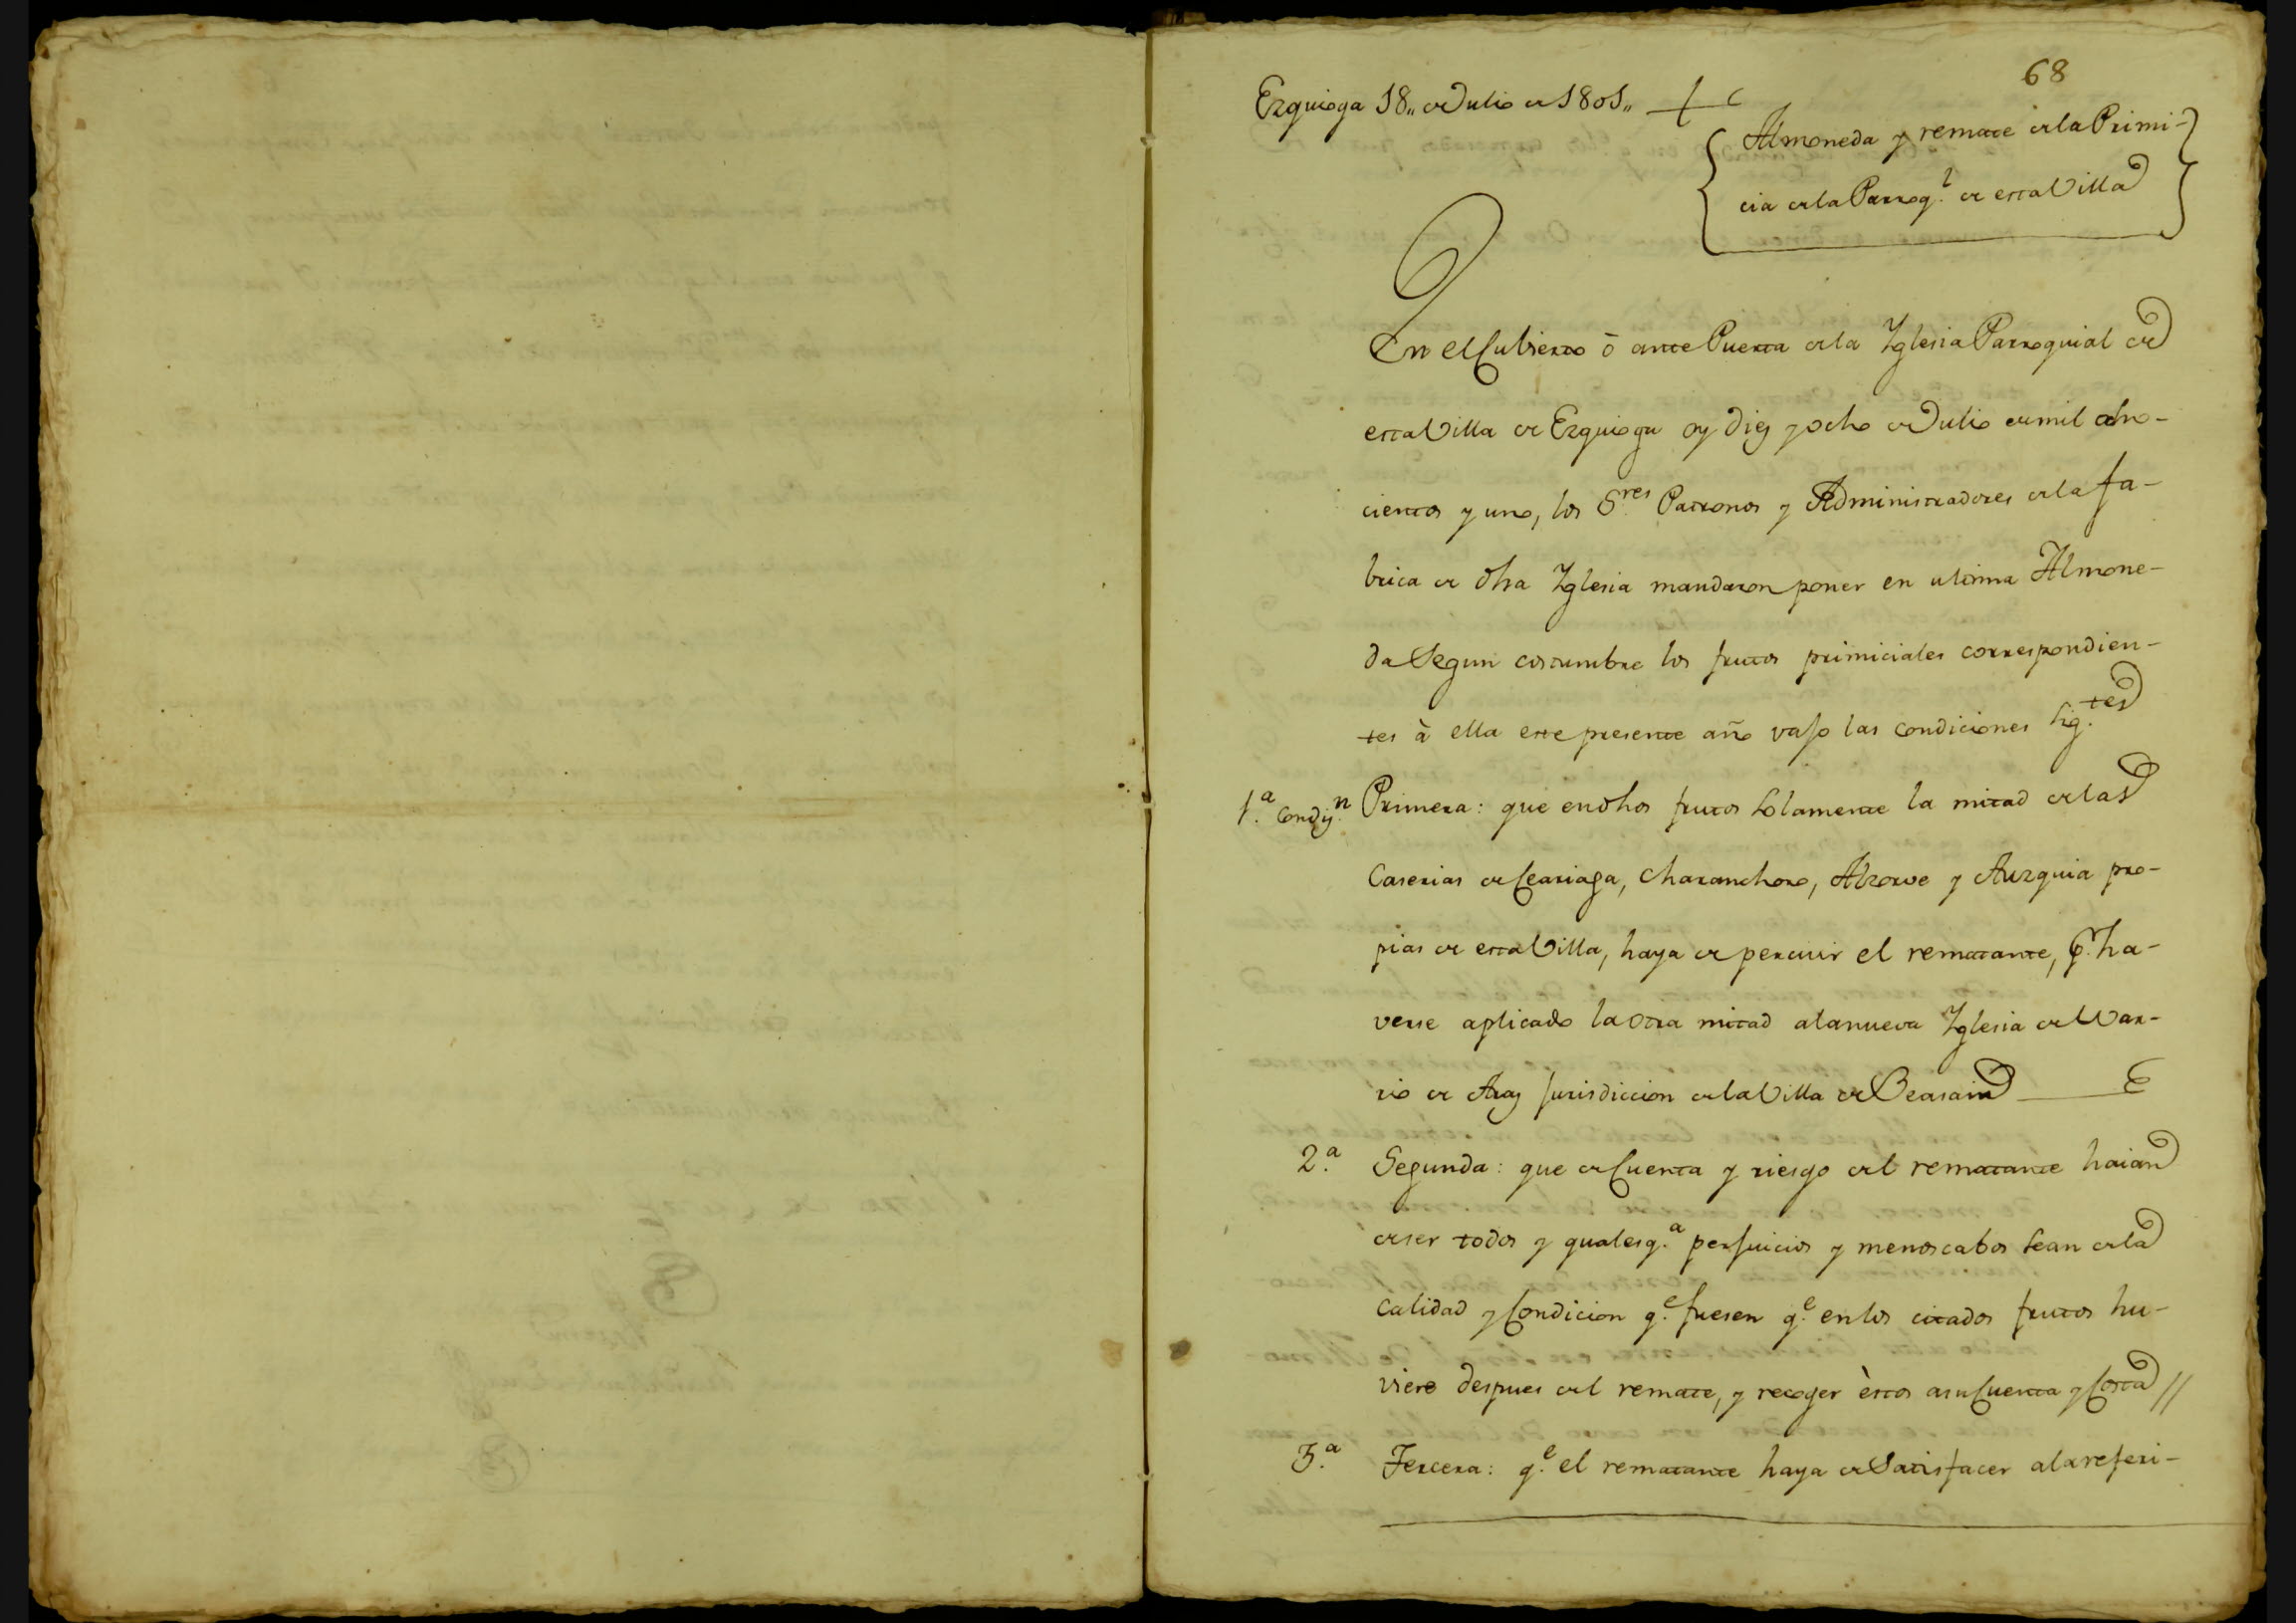 68
Ezquioga 18,, de Julio de 1801,,
Almoneda y remate de la Primi-
cia de la Parroq.l de esta Villa
En el Cubierto ò ante Puerta de la Yglesia Parroquial de
esta Villa de Ezquioga oy diez y ocho de Julio de mil ocho-
cientos y uno, los S.res Patronos y Administradores de la fa-
brica de dha Yglesia mandaron poner en ultima Almone-
da Segun costumbre los frutos primiciales correspondien-
tes à ella este presente año vajo las condiciones sig.tes
1.a Condiz.n Primera: que en dhos frutos Solamente la mitad de las
Caserias de Leariaga, Charanchoro, Alzorve y Auzquia pro-
pias de esta Villa, haya de percivir el rematante, p.r ha-
verse aplicado la otra mitad a la nueva Yglesia del Var-
rio de Araz jurisdiccion de la Villa de Beasain
2.a Segunda: que de Cuenta y riesgo del rematante haian
de ser todos y qualesq.a perjuicios y menoscabos sean de la
calidad y Condicion q.e fuesen q.e en los citados frutos hu-
viere despues del remate, y recoger èstos a su Cuenta y Costa //
3.a Tercera: q.e el rematante haya de Satisfacer a la referi-